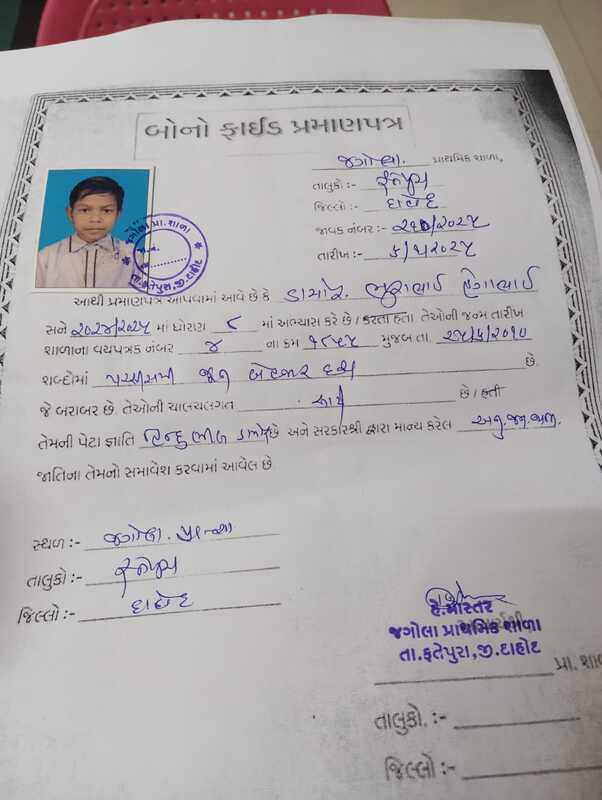 બોનો ફાઈડ પ્રમાણપત્ર
જગોલા. પ્રાથમિક શાળા,
તાલુકો :- ફતેપુરા
જિલ્લો :- દાહોદ
જાવક નંબર :- /૨૦૨૫
તારીખ :- /૨૦૨૫
જગોલા પ્રા. શાળા
તા. ફતેપુરા, જી. દાહોદ
આથી પ્રમાણપત્ર આપવામાં આવે છે કે ડામોર ભુરાભાઈ
સને ૨૦૨૪/૨૦૨૫ માં ધોરણ ૮ માં અભ્યાસ કરે છે / કરતા હતા તેઓની જન્મ તારીખ
શાળાના વયપત્રક નંબર ૪ ના ક્રમ ૧૮૫૫ મુજબ તા. ૨૫/૬/૨૦૧૦
શબ્દોમાં પચ્ચીસમી જૂન બે હજાર દસ છે.
જે બરાબર છે. તેઓની ચાલચલગત સારી છે / હતી
તેમની પેટા જ્ઞાતિ હિન્દુ ભીલ છે અને સરકારશ્રી દ્વારા માન્ય કરેલ અનુ.જન.જાતિ.
જાતિના તેમનો સમાવેશ કરવામાં આવેલ છે
સ્થળ :- જગોલા. પ્રા. શાળા
તાલુકો :- ફતેપુરા
જિલ્લો :- દાહોદ
હે.માસ્તર
જગોલા પ્રાથમિક શાળા
તા.ફતેપુરા,જી.દાહોદ
પ્રા. શાળા
તાલુકો. :-
જિલ્લો :-